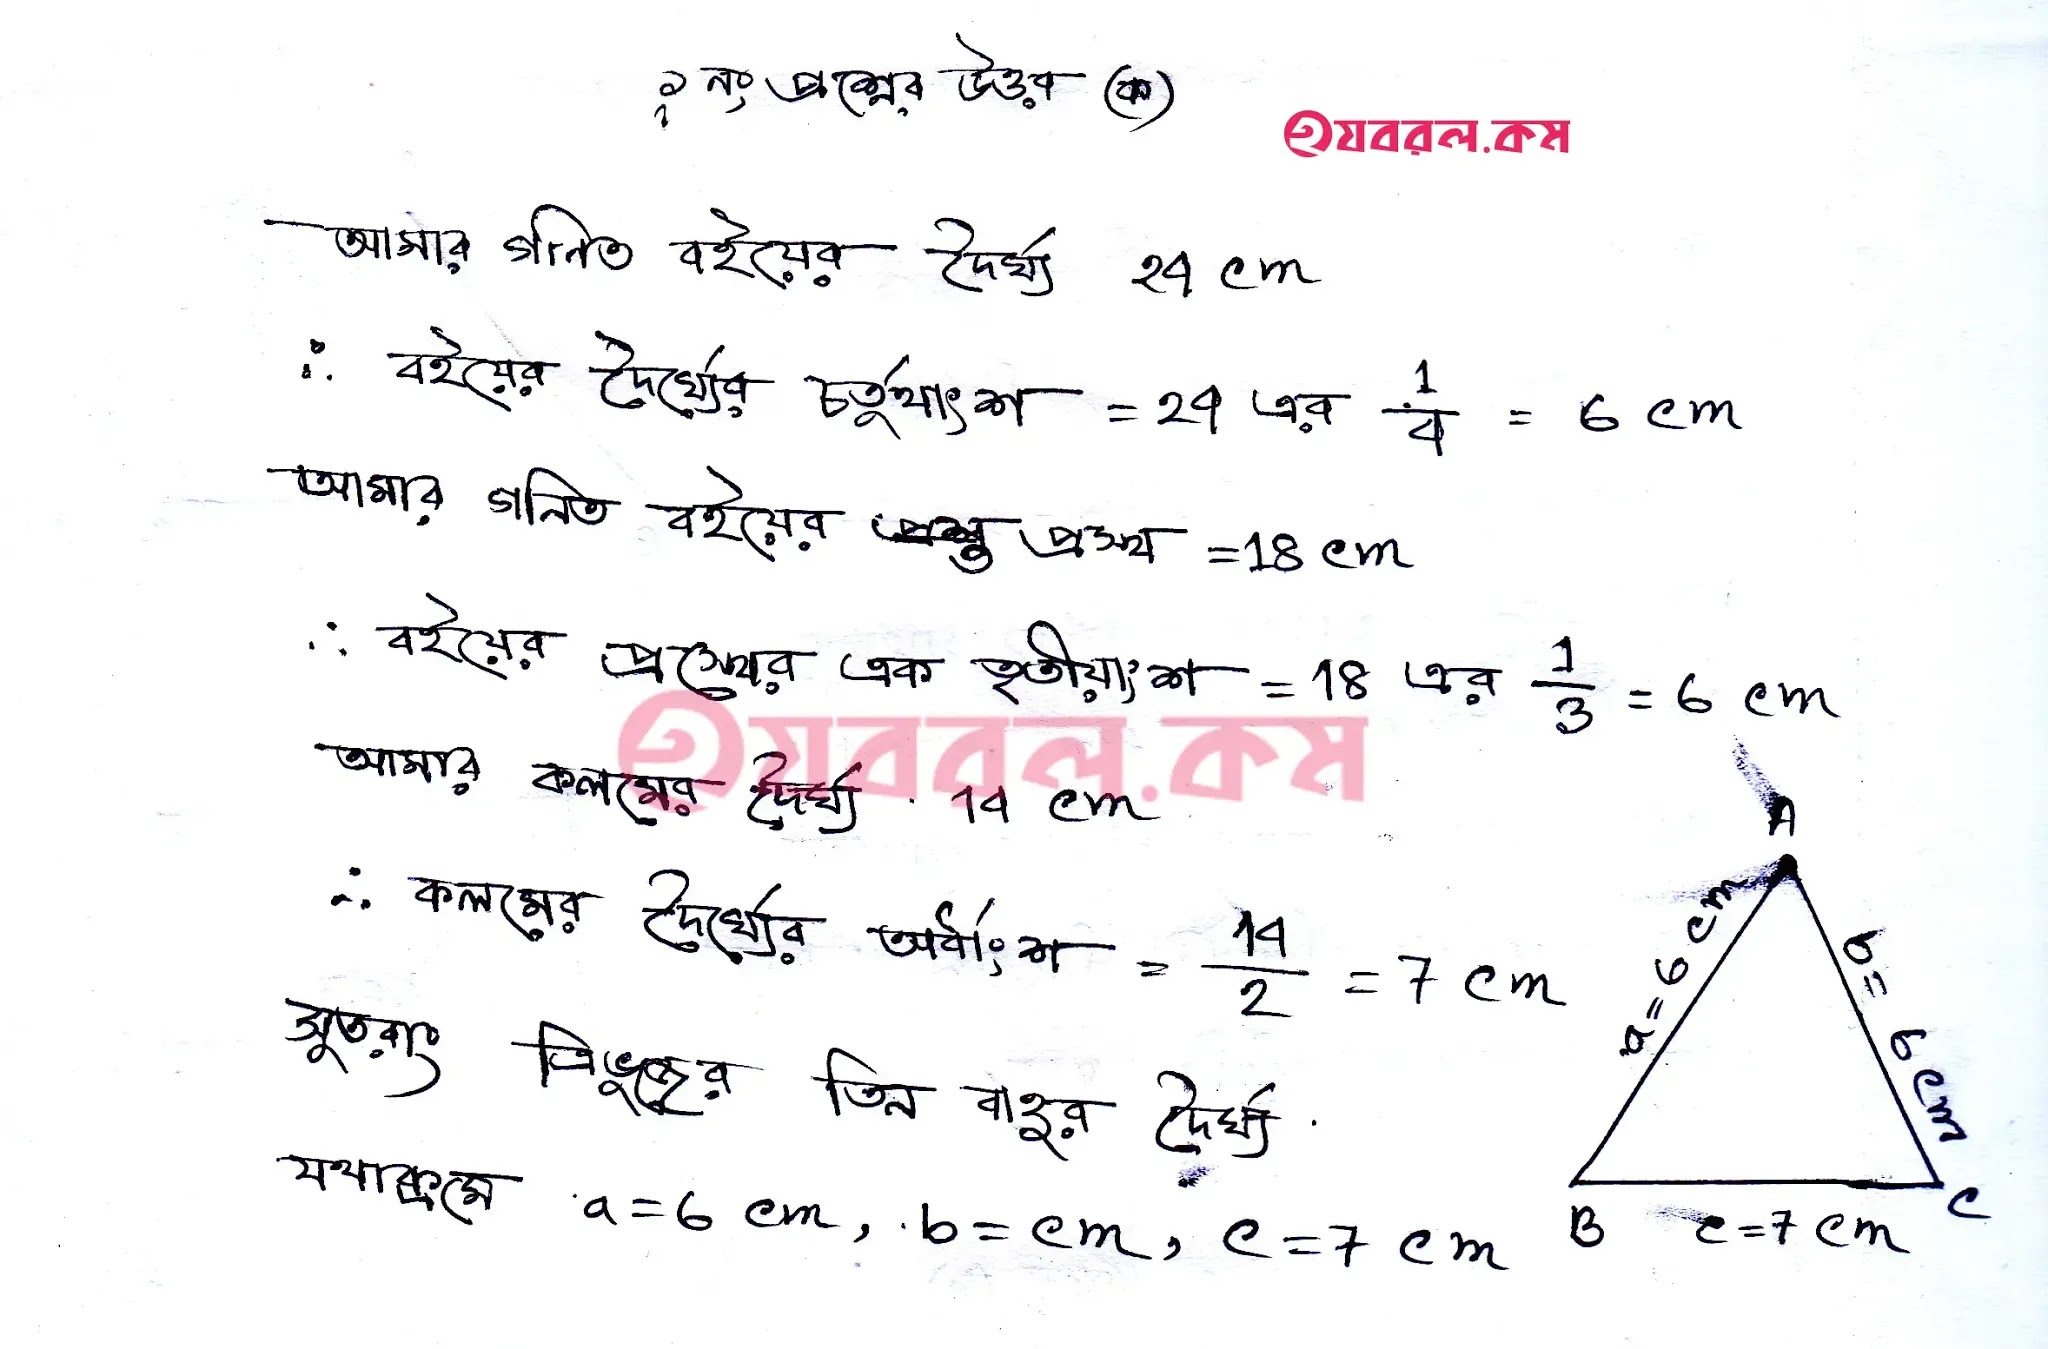 ২ নং প্রশ্নের উত্তর (ক)
হযবরল.কম
আমার গনিত বইয়ের দৈর্ঘ্য 24 cm
∴ বইয়ের দৈর্ঘ্যের চর্তুথাংশ = 24 এর 1/4 = 6 cm
আমার গনিত বইয়ের প্রস্থ =18 cm
∴ বইয়ের প্রস্থের এক তৃতীয়াংশ = 18 এর 1/3 = 6 cm
হযবরল.কম
আমার কলমের দৈর্ঘ্য 14 cm
∴ কলমের দৈর্ঘ্যের অর্ধাংশ = 14/2 = 7 cm
সুতরাং ত্রিভুজের তিন বাহুর দৈর্ঘ্য
যথাক্রমে a = 6 cm, b = cm, c = 7 cm
A
a = 6 cm
b = 6 cm
B
C
c = 7 cm